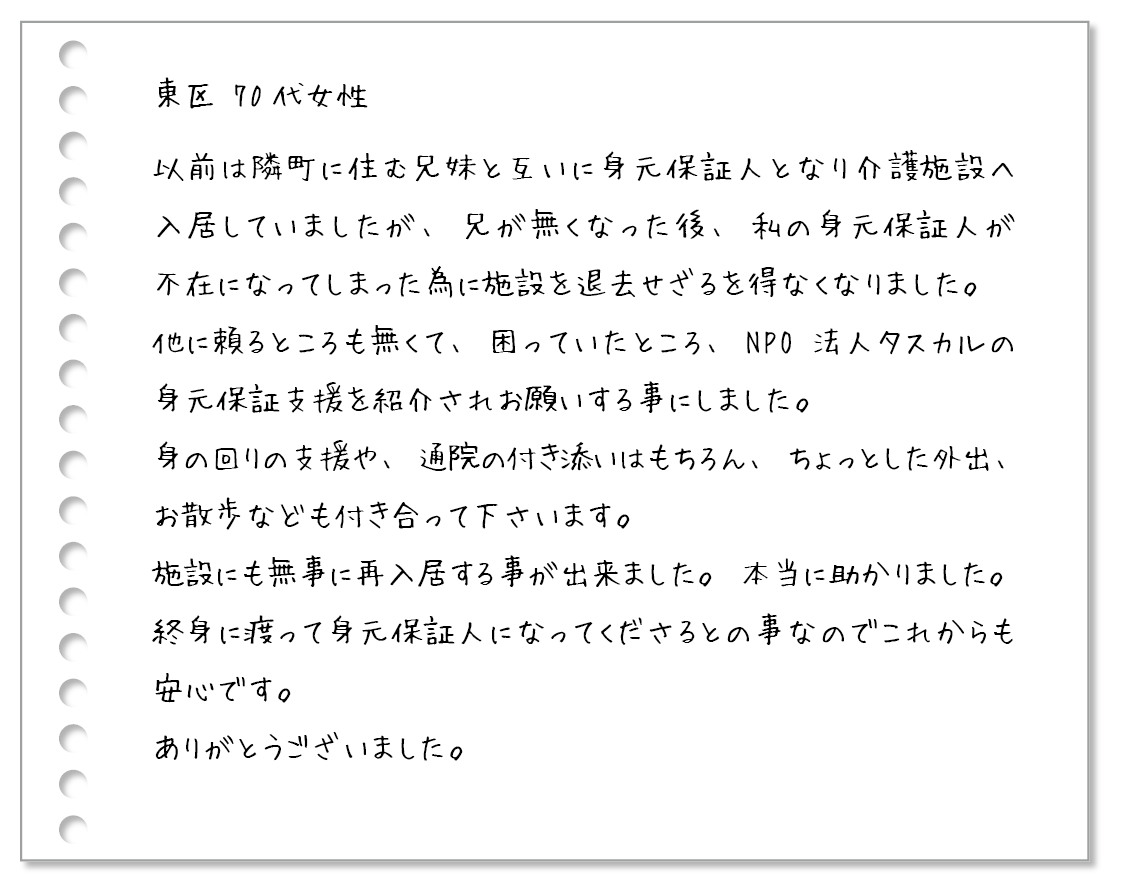 東区 70代女性
以前は隣町に住む兄妹と互いに身元保証人となり介護施設へ
入居していましたが、 兄が無くなった後、 私の身元保証人が
不在になってしまった為に施設を退去せざるを得なくなりました。
他に頼るところも無くて、 困っていたところ、 NPO 法人タスカルの
身元保証支援を紹介されお願いする事にしました。
身の回りの支援や、 通院の付き添いはもちろん、 ちょっとした外出、
お散歩なども付き合って下さいます。
施設にも無事に再入居する事が出来ました。 本当に助かりました。
終身に渡って身元保証人になってくださるとの事なのでこれからも
安心です。
ありがとうございました。